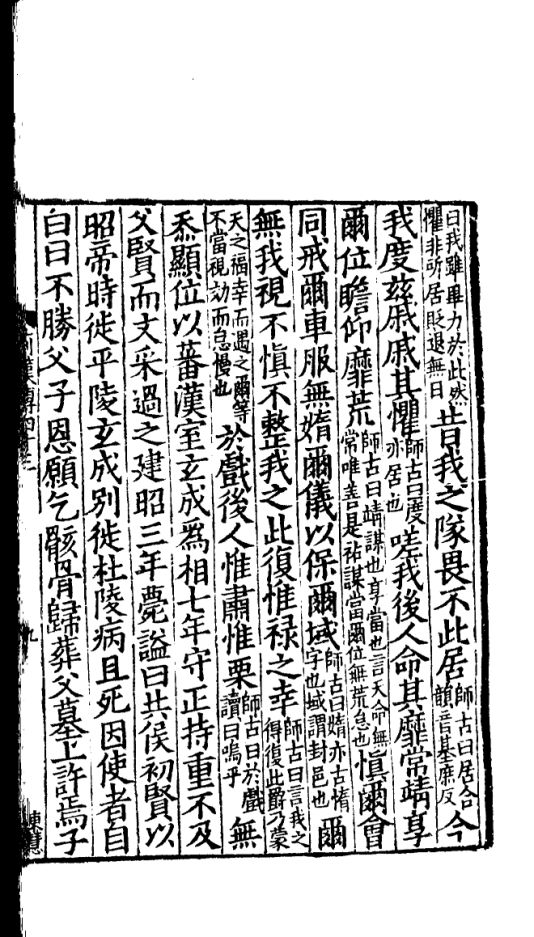 曰我雖畢力於此然懼非所居貶退無日昔我之隊畏不此居師古曰居合韻音基庶反今
我度茲戚戚其懼師古曰度亦居也嗟我後人命其靡常靖享
爾位瞻仰靡荒師古曰靖謀也享當也言天命無常唯善是祐謀當爾位無荒怠也慎爾會
同戒爾車服無媠爾儀以保爾域師古曰媠亦古惰字也域謂封邑也爾
無我視不慎不整我之此復惟祿之幸師古曰言我之得復此爵乃蒙
天之福幸而遇之爾等不當視効而怠慢也於戲後人惟肅惟栗師古曰於戲讀曰嗚乎無
忝顯位以蕃漢室玄成爲相七年守正持重不及
父賢而文采過之建昭三年薨謚曰共侯初賢以
昭帝時徙平陵玄成別徙杜陵病且死因使者自
白曰不勝父子恩願乞骸骨歸葬父墓上許焉子
九